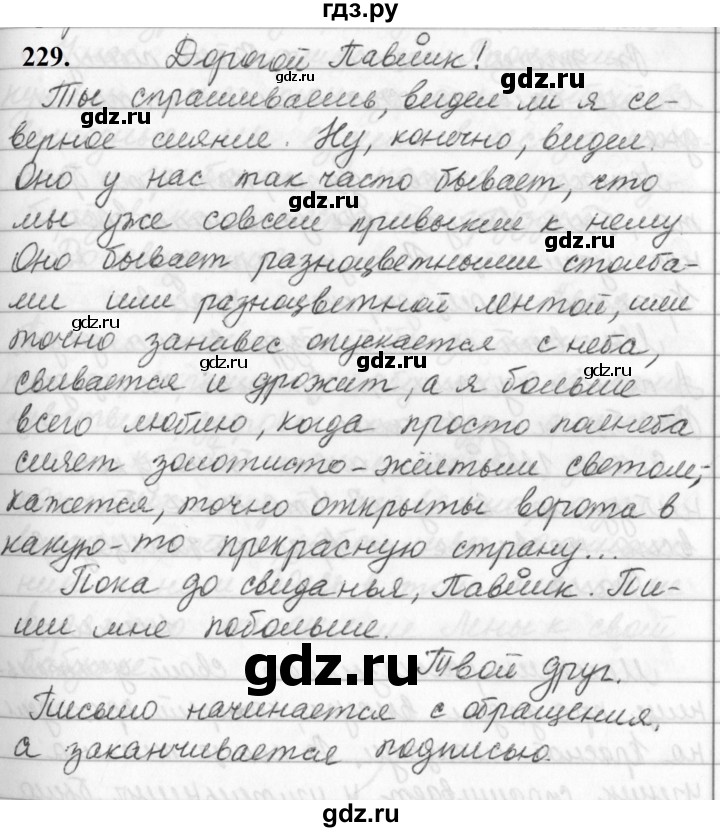 гдз.ру
229. Дорогой Павлик!
gdz.ru
Ты спрашиваешь, видел ли я се-
gdz.ru gdz.ru
верное сияние. Ну, конечно, видел.
Оно у нас так часто бывает, что
gdz.ru
мы уже совсем привыкли к нему
gdz.ru
Оно бывает разноцветными столба-
ми или разноцветной лентой, или
gdz.ru
точно занавес опускается с неба,
gdz.ru gdz.ru
свивается и дрожит, а я больше
всего люблю, когда просто полнеба
сияет золотисто-жёлтым светом,
gdz.ru gdz.ru
кажется, точно открыты ворота в
какую-то прекрасную страну...
Пока до свиданья, Павлик. Пи-
gdz.ru gdz.ru
ши мне побольше.
gdz.ru
Твой друг.
Письмо начинается с обращения,
gdz.ru
а заканчивается подписью.
gdz.ru gdz.ru
gdz.ru